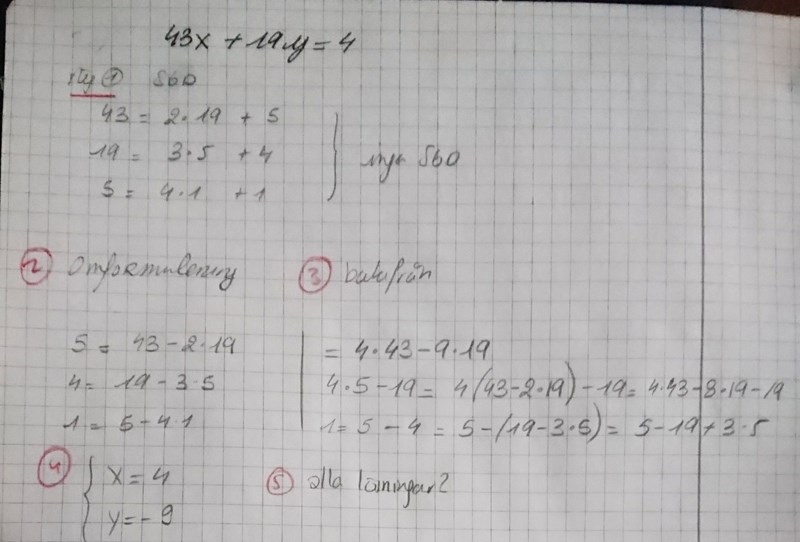 43x + 19y = 4
① SGD
43 = 2·19 + 5
19 = 3·5 + 4
5 = 4·1 + 1
SGD
② Omformulering
5 = 43 - 2·19
4 = 19 - 3·5
1 = 5 - 4·1
③ bakifrån
= 4·43 - 9·19
4·5 - 19 = 4(43 - 2·19) - 19 = 4·43 - 8·19 - 19
1 = 5 - 4 = 5 - (19 - 3·5) = 5 - 19 + 3·5
④ { x = 4
y = -9
⑤ alla lösningar?